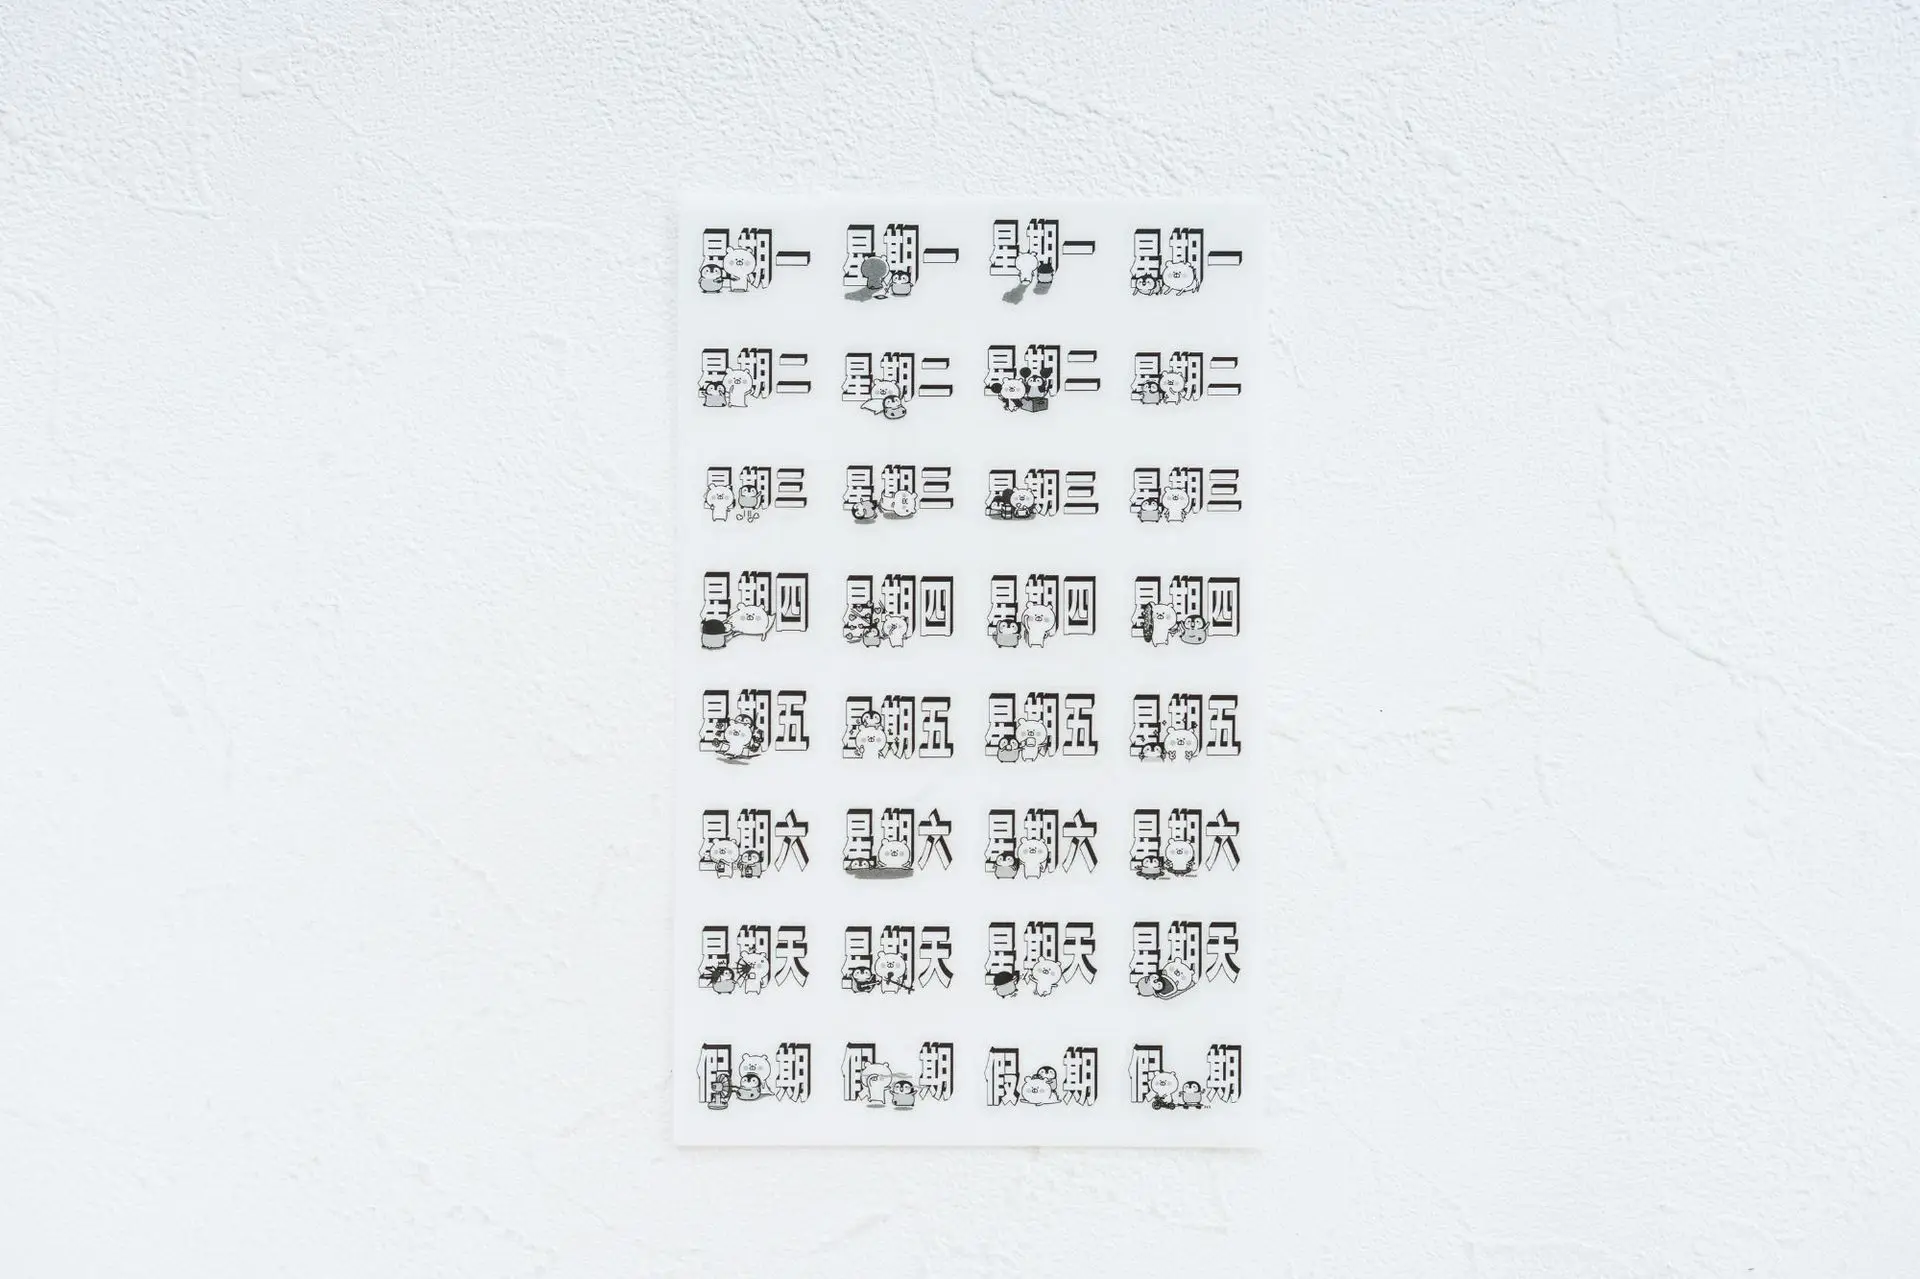 星期一 星期一 星期一 星期一
星期二 星期二 星期二 星期二
星期三 星期三 星期三 星期三
星期四 星期四 星期四 星期四
星期五 星期五 星期五 星期五
星期六 星期六 星期六 星期六
星期天 星期天 星期天 星期天
假期 假期 假期 假期